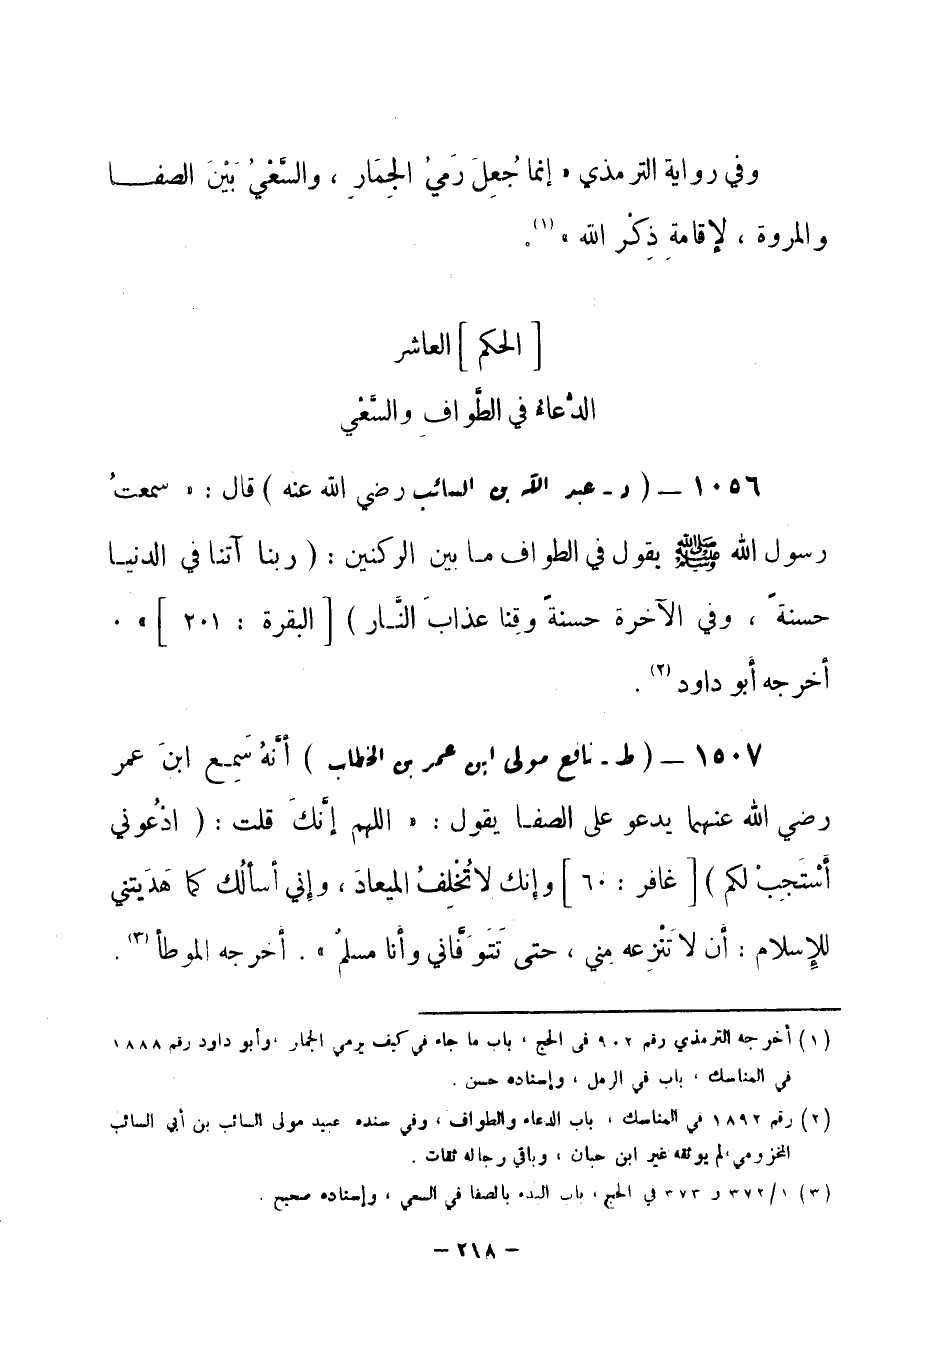 وفي رواية الترمذي « إنما جُعِلَ رَميُ الجِمَارِ ، والسَّعْيُ بَيْنَ الصفا
والمروة ، لإقامةِ ذِكْرِ الله » (١).
[ الحكم ] العاشر
الدُّعاءُ في الطَّوافِ والسَّعْي
١٠٥٦ – ( د - عبد الله بن السائب رضي الله عنه ) قال : « سمعتُ
رسول الله ﷺ يقول في الطواف ما بين الركنين : ( ربنا آتنا في الدنيا
حسنةً ، وفي الآخرة حسنةً وقِنا عذابَ النَّار ) [ البقرة : ٢٠١ ] » .
أخرجه أبو داود (٢) .
١٥٠٧ – ( ط - نافع مولى ابن عمر بن الخطاب ) أنَّهُ سَمِع ابنَ عمر
رضي الله عنهما يدعو على الصفا يقول : « اللهم إنَّكَ قلت : ( ادْعُوني
أسْتَجِبْ لكم ) [ غافر : ٦٠ ] وإنك لا تُخْلِفُ الميعادَ ، وإني أسألُك كما هَدَيتني
للإسلام : أن لا تَنْزِعه مِني ، حتى تَتَوَفَّاني وأنا مسلمٌ » . أخرجه الموطأ (٣) .
(١) أخرجه الترمذي رقم ٩٠٢ في الحج ، باب ما جاء في كيف يرمي الجمار ، وأبو داود رقم ١٨٨٨
في المناسك ، باب في الرمل ، وإسناده حسن .
(٢) رقم ١٨٩٢ في المناسك ، باب الدعاء والطواف ، وفي سنده عبيد مولى السائب بن أبي السائب
المخزومي ، لم يوثقه غير ابن حبان ، وباقي رجاله ثقات .
(٣) ٣٧٢/١ و ٣٧٣ في الحج ، باب البدء بالصفا في السعي ، وإسناده صحيح .
– ٢١٨ –